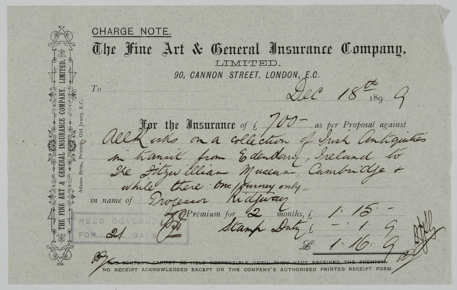 CHARGE NOTE.
The Fine Art & General Insurance Company,
LIMITED.
90, CANNON STREET, LONDON, E.C.
To
Dec 18th 1899
For the Insurance of £ 700- as per Proposal against
All risks on a collection of Irish Antiquities
in transit from Edenderry, Ireland to
The Fitzwilliam Museum, Cambridge &
while there one journey only
in name of Professor Ridgeway
Premium for 2 months, £ 1.15.-
Stamp Duty - 1 9
£ 1.16.9
THE COMPANY CANNOT BE HELD RESPONSIBLE UNTIL THEY HAVE RECEIVED THE PREMIUM.
NO RECEIPT ACKNOWLEDGED EXCEPT ON THE COMPANY'S AUTHORISED PRINTED RECEIPT FORM
THE FINE ART & GENERAL INSURANCE COMPANY, LIMITED.
HELD COVERED
FOR DAYS